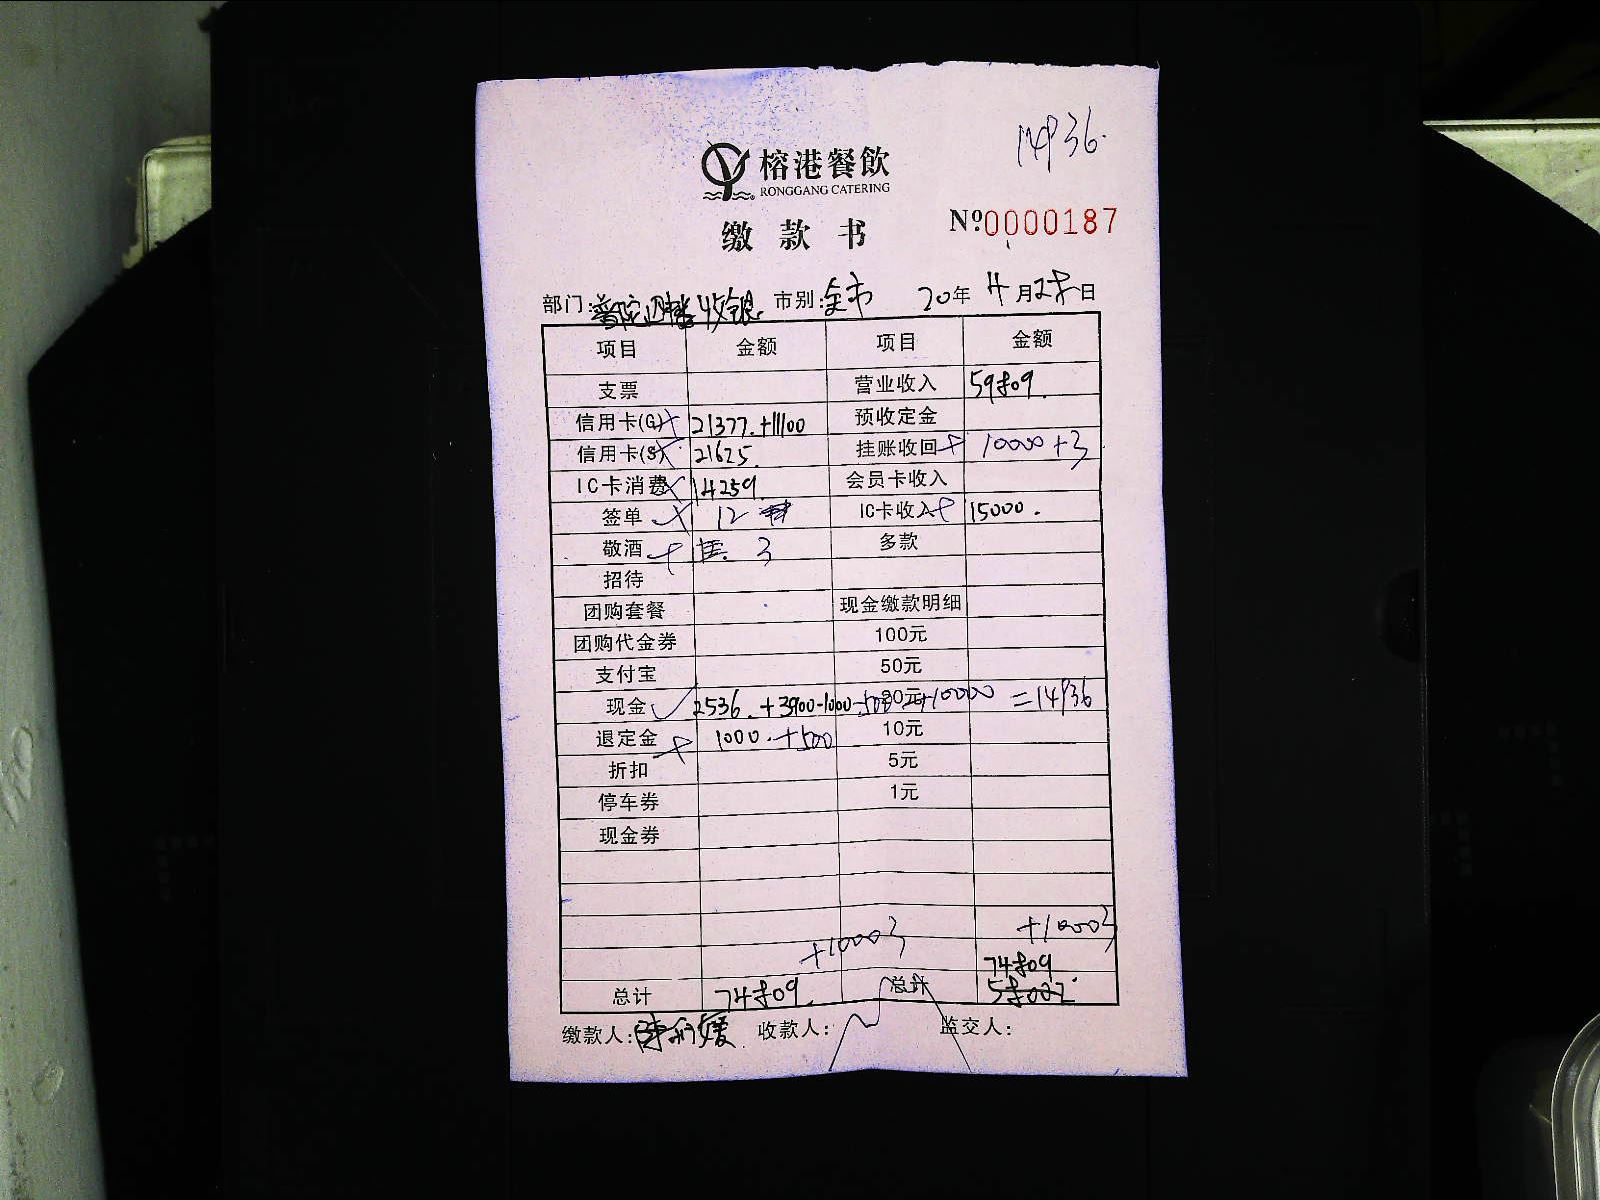 14936.
榕港餐飲
RONGGANG CATERING
缴款书
№0000187
部门:普陀四楼收银 市别:全市 20年4月28日
项目 金额 项目 金额
支票 营业收入 59809.
信用卡(G) 21377.+11100 预收定金
信用卡(S) 21625. 挂账收回 10000+3
IC卡消费 14259. 会员卡收入
签单 12 IC卡收入 15000.
敬酒 3 多款
招待
团购套餐 现金缴款明细
团购代金券 100元
支付宝 50元
现金 2536.+3900-1000-500 +10000 =14936
退定金 1000.+500 10元
折扣 5元
停车券 1元
现金券
+10003 +10003
74809
总计 74809. 总计
缴款人: 收款人: 监交人: